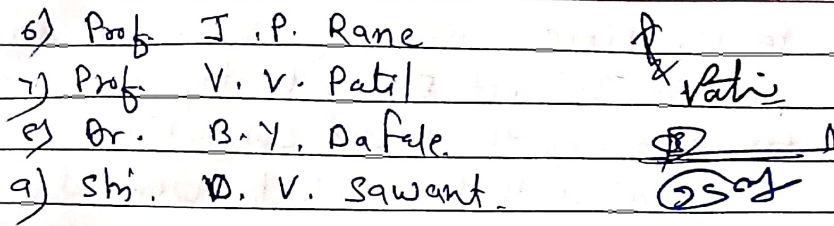 6) Prof. J. P. Rane
7) Prof. V. V. Patil Patil
8) Dr. B. Y. Dafale.
9) Shi. D. V. Sawant.